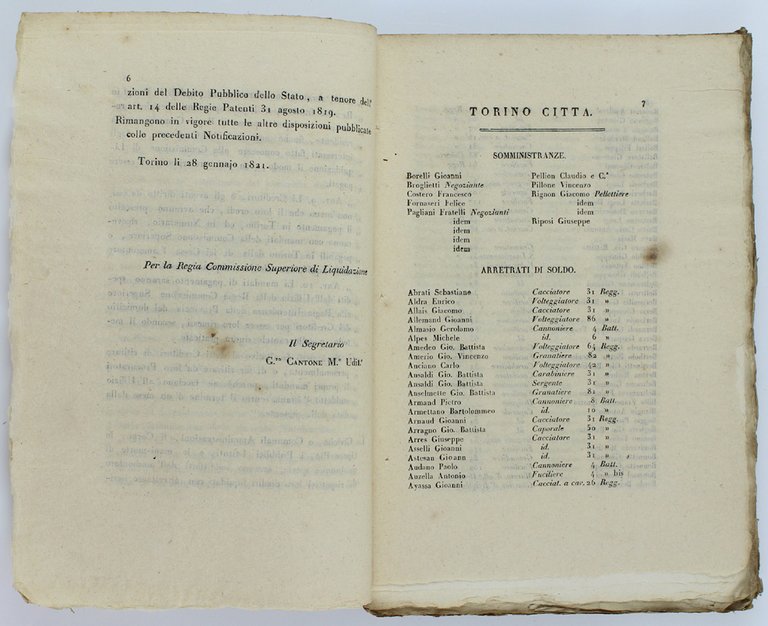 6
zioni del Debito Pubblico dello Stato, a tenore dell'
art. 14 delle Regie Patenti 31 agosto 1819.
Rimangono in vigore tutte le altre disposizioni pubblicate
colle precedenti Notificazioni.
Torino li 28 gennajo 1821.
Per la Regia Commissione Superiore di Liquidazione
Il Segretario
CANTONE M.ᵃ Udit.ᵉ
7
TORINO CITTA.
SOMMINISTRANZE.
Borelli Gioanni
Broglietti Negoziante
Costero Francesco
Fornaseri Felice
Pagliani Fratelli Negozianti
idem
idem
idem
idem
Pellion Claudio e C.ᵃ
Pillone Vincenzo
Rignon Giacomo Pellettiere
idem
idem
Riposi Giuseppe
ARRETRATI DI SOLDO.
Abrati Sebastiano Cacciatore 31 Regg.
Aldra Enrico Volteggiatore 31 »
Allais Giacomo Cacciatore 31 »
Allemand Gioanni Volteggiatore 86 »
Almasio Gerolamo Cannoniere 4 Batt.
Alpes Michele id. 6 »
Amedeo Gio. Battista Volteggiatore 64 Regg.
Amerio Gio. Vincenzo Granatiere 82 »
Anciano Carlo Volteggiatore 42 »
Ansaldi Gio. Battista Carabiniere 31 »
Ansaldi Gio. Battista Sergente 31 »
Anselmette Gio. Battista Granatiere 81 »
Armand Pietro Cannoniere 8 Batt.
Armettano Bartolommeo id. 10 »
Arnaud Gioanni Cacciatore 31 Regg.
Arragno Gio. Battista Caporale 50 »
Arres Giuseppe Cacciatore 31 »
Asselli Gioanni id. 31 »
Astesan Gioann id. 31 »
Audano Paolo Cannoniere 4 Batt.
Auzella Antonio Fuciliere 4 » bis
Ayassa Gioanni Cacciat. a cav. 26 Regg.